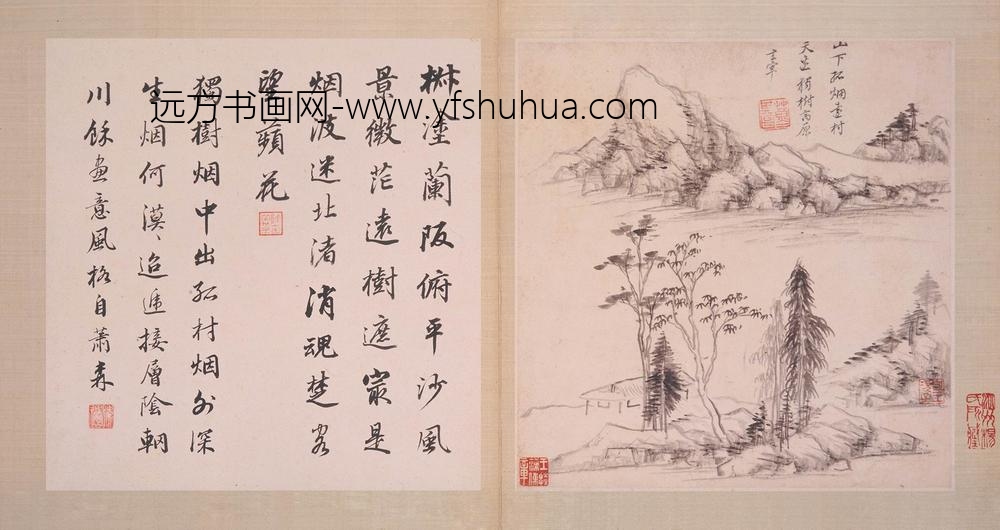 山下孤烟遠村
天邊獨樹高原
玄宰
椒塗蘭阪俯平沙風
景微茫遠樹遮最是
烟波迷北渚消魂楚客
望蘋花
獨樹烟中出孤村烟外深
生烟何漠〻迢遞接層陰輞
川餘畫意風格自蕭森
远方书画网-www.yfshuhua.com